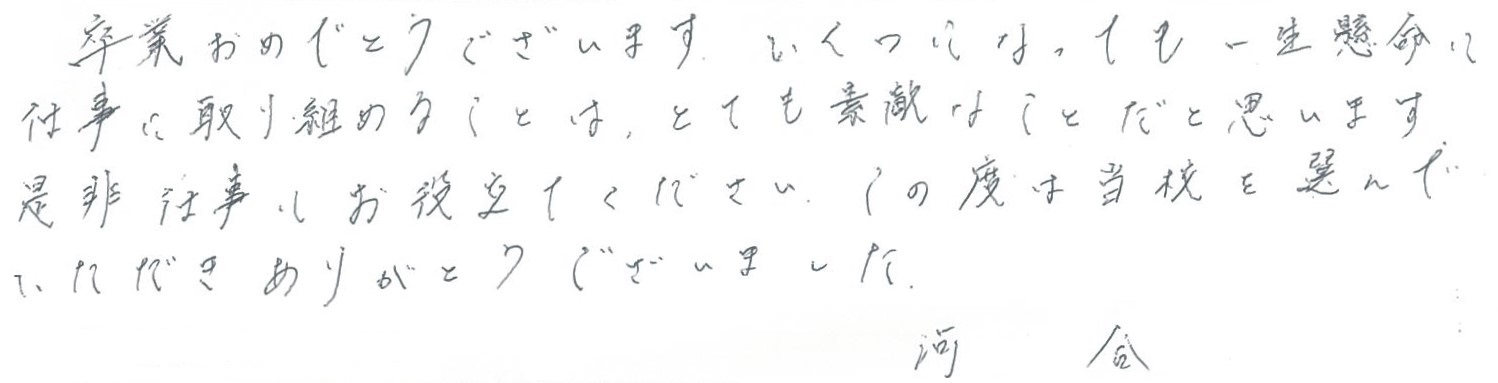 卒業おめでとうございます。いくつになっても一生懸命に
仕事に取り組めることは、とても素敵なことだと思います
是非仕事にお役立てください。この度は当校を選んで
いただきありがとうございました。
河合